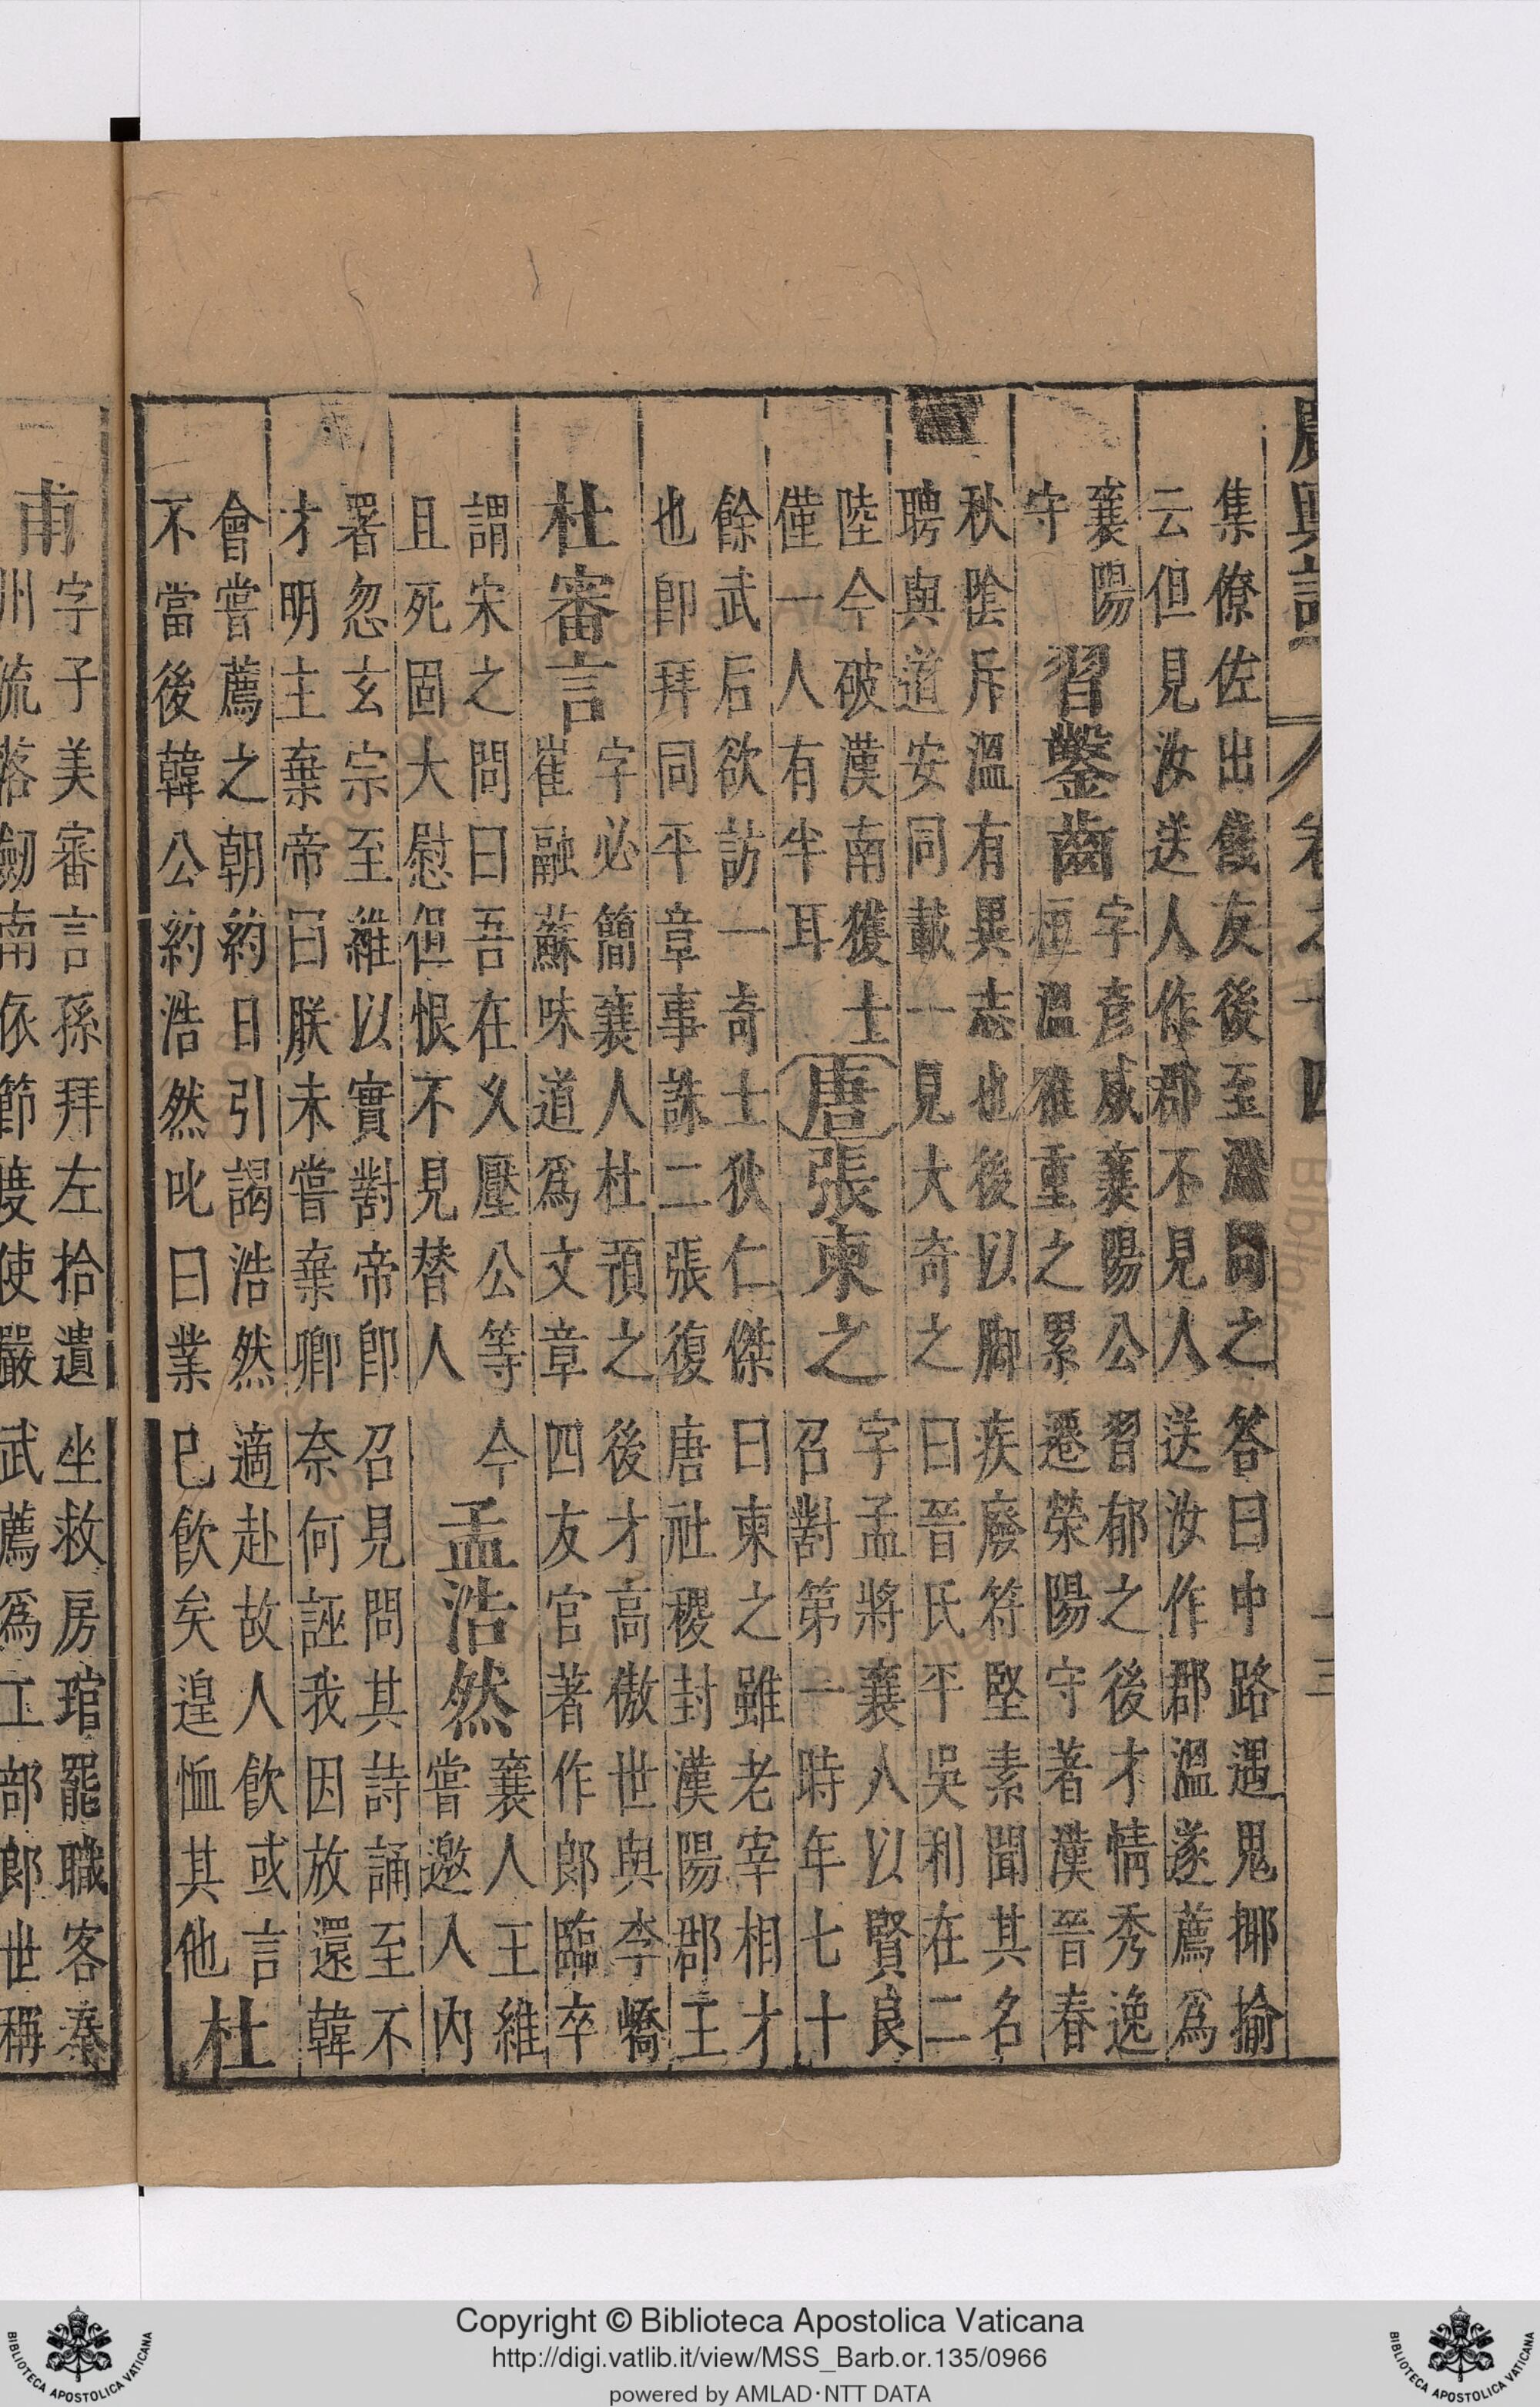 廣輿記 卷之十四 十三
集僚佐出餞友後至溫問之答曰中路遇鬼揶揄
云但見汝送人作郡不見人送汝作郡溫遂薦為
襄陽
守
習鑿齒
字彥威襄陽公習郁之後才情秀逸
桓溫雅重之累遷榮陽守著漢晉春
秋陰斥溫有異志也後以脚疾廢符堅素聞其名
聘與道安同載一見大奇之曰晉氏平吳利在二
陸今破漢南獲士
僅一人有半耳
唐
張柬之
字孟將襄人以賢良
召對第一時年七十
餘武后欲訪一奇士狄仁傑曰柬之雖老宰相才
也卽拜同平章事誅二張復唐社稷封漢陽郡王
杜審言
字必簡襄人杜預之後才高傲世與李嶠
崔融蘇味道爲文章四友官著作郎臨卒
謂宋之問曰吾在久壓公等今
且死固大慰但恨不見替人
孟浩然
襄人王維
嘗邀入內
署忽玄宗至維以實對帝卽召見問其詩誦至不
才明主棄帝曰朕未嘗棄卿奈何誣我因放還韓
會嘗薦之朝約日引謁浩然適赴故人飲或言
不當後韓公約浩然叱曰業已飲矣遑恤其他
杜
甫
字子美審言孫拜左拾遺坐救房琯罷職客秦
州流落劒南依節度使嚴武薦爲工部郎世稱
Copyright © Biblioteca Apostolica Vaticana
http://digi.vatlib.it/view/MSS_Barb.or.135/0966
powered by AMLAD·NTT DATA